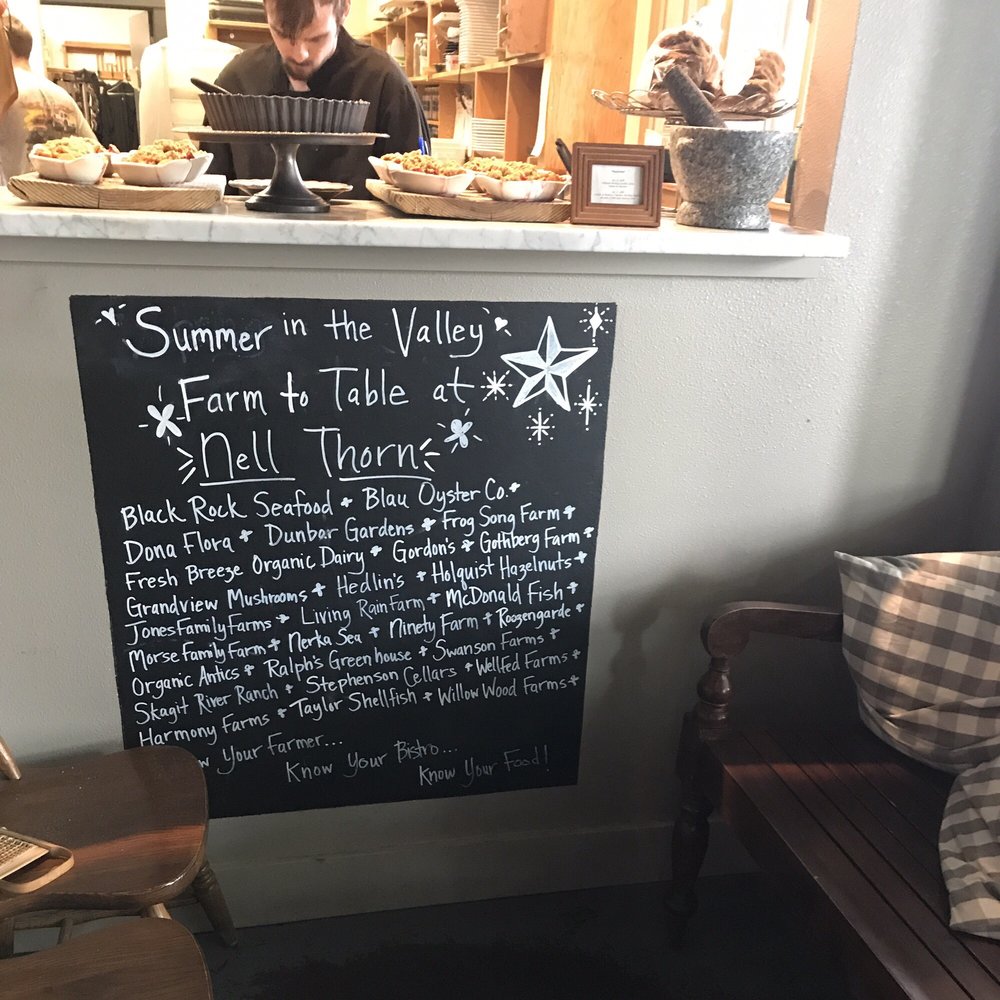 Summer in the Valley
Farm to Table at
Nell Thorn
Black Rock Seafood + Blau Oyster Co. +
Dona Flora + Dunbar Gardens + Frog Song Farm +
Fresh Breeze Organic Dairy + Gordon's + Gothberg Farm +
Grandview Mushrooms + Hedlin's + Holquist Hazelnuts +
Jones Family Farms + Living Rain Farm + McDonald Fish +
Morse Family Farm + Nerka Sea + Ninety Farm + Roozengarde +
Organic Antics + Ralph's Greenhouse + Swanson Farms +
Skagit River Ranch + Stephenson Cellars + Wellfed Farms +
Harmony Farms + Taylor Shellfish + Willow Wood Farms +
w Your Farmer...
Know Your Bistro...
Know Your Food!